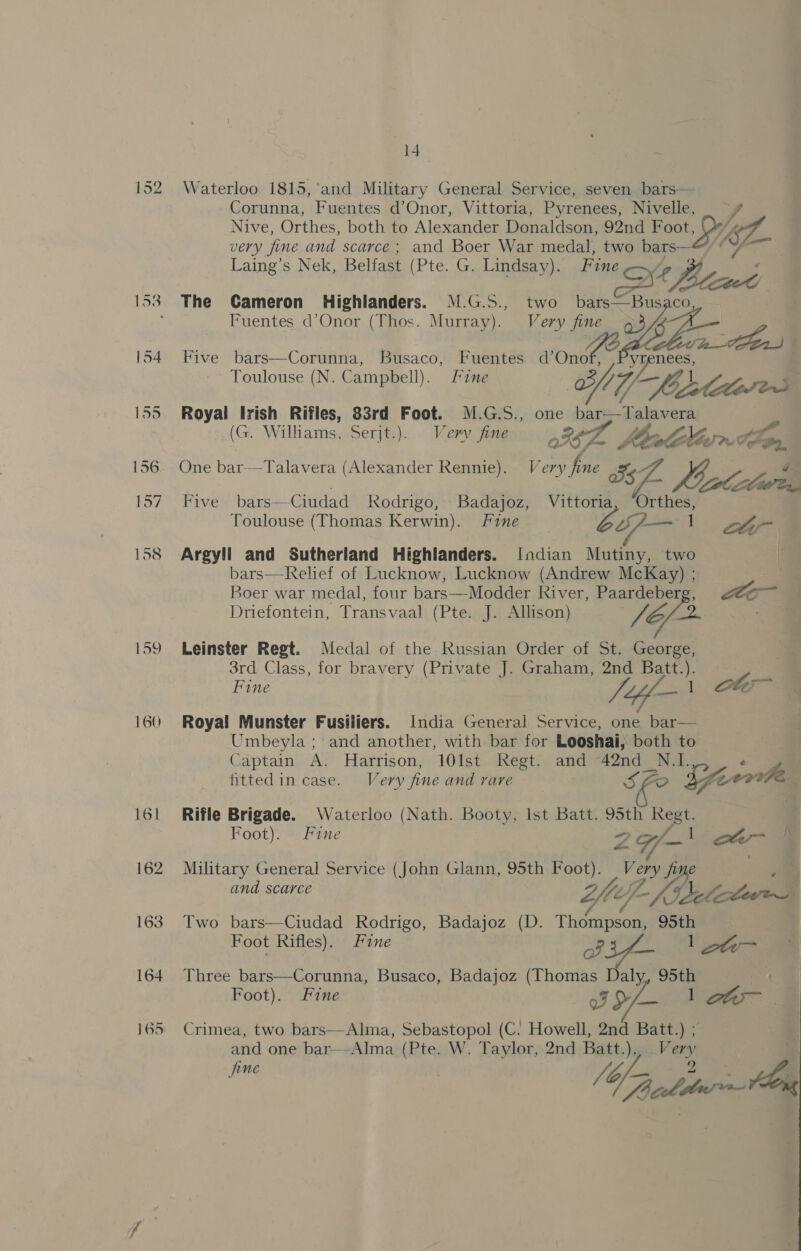 14
152 Waterloo 1815, and Military General Service, seven bars—
Corunna, Fuentes d'Onor, Vittoria, Pyrenees, Nivelle,
Nive, Orthes, both to Alexander Donaldson, 92nd Foot,
very fine and scarce; and Boer War medal, two bars—
Laing's Nek, Belfast (Pte. G. Lindsay). Fine
153 The Cameron Highlanders. M.G.S., two bars—Busaco,
Fuentes d'Onor (Thos. Murray). Very fine
154 Five bars—Corunna, Busaco, Fuentes d'Onor, Pyrenees,
Toulouse (N. Campbell). Fine
155 Royal Irish Rifles, 83rd Foot. M.G.S., one bar—Talavera
(G. Williams, Serjt.). Very fine
156 One bar—Talavera (Alexander Rennie). Very fine
157 Five bars—Ciudad Rodrigo, Badajoz, Vittoria, Orthes,
Toulouse (Thomas Kerwin). Fine 1
158 Argyll and Sutherland Highlanders. Indian Mutiny, two
bars—Relief of Lucknow, Lucknow (Andrew McKay);
Boer war medal, four bars—Modder River, Paardeberg,
Driefontein, Transvaal (Pte. J. Allison) 16/ 2
159 Leinster Regt. Medal of the Russian Order of St. George,
3rd Class, for bravery (Private J. Graham, 2nd Batt.).
Fine 1
160 Royal Munster Fusiliers. India General Service, one bar—
Umbeyla; and another, with bar for Looshai, both to
Captain A. Harrison, 101st Regt. and 42nd N.I.,
fitted in case. Very fine and rare
161 Rifle Brigade. Waterloo (Nath. Booty, 1st Batt. 95th Regt.
Foot). Fine 1
162 Military General Service (John Glann, 95th Foot). Very fine
and scarce
163 Two bars—Ciudad Rodrigo, Badajoz (D. Thompson, 95th
Foot Rifles). Fine 1
164 Three bars—Corunna, Busaco, Badajoz (Thomas Daly, 95th
Foot). Fine 1
165 Crimea, two bars—Alma, Sebastopol (C. Howell, 2nd Batt.);
and one bar—Alma (Pte. W. Taylor, 2nd Batt.), Very
fine 16/- 2